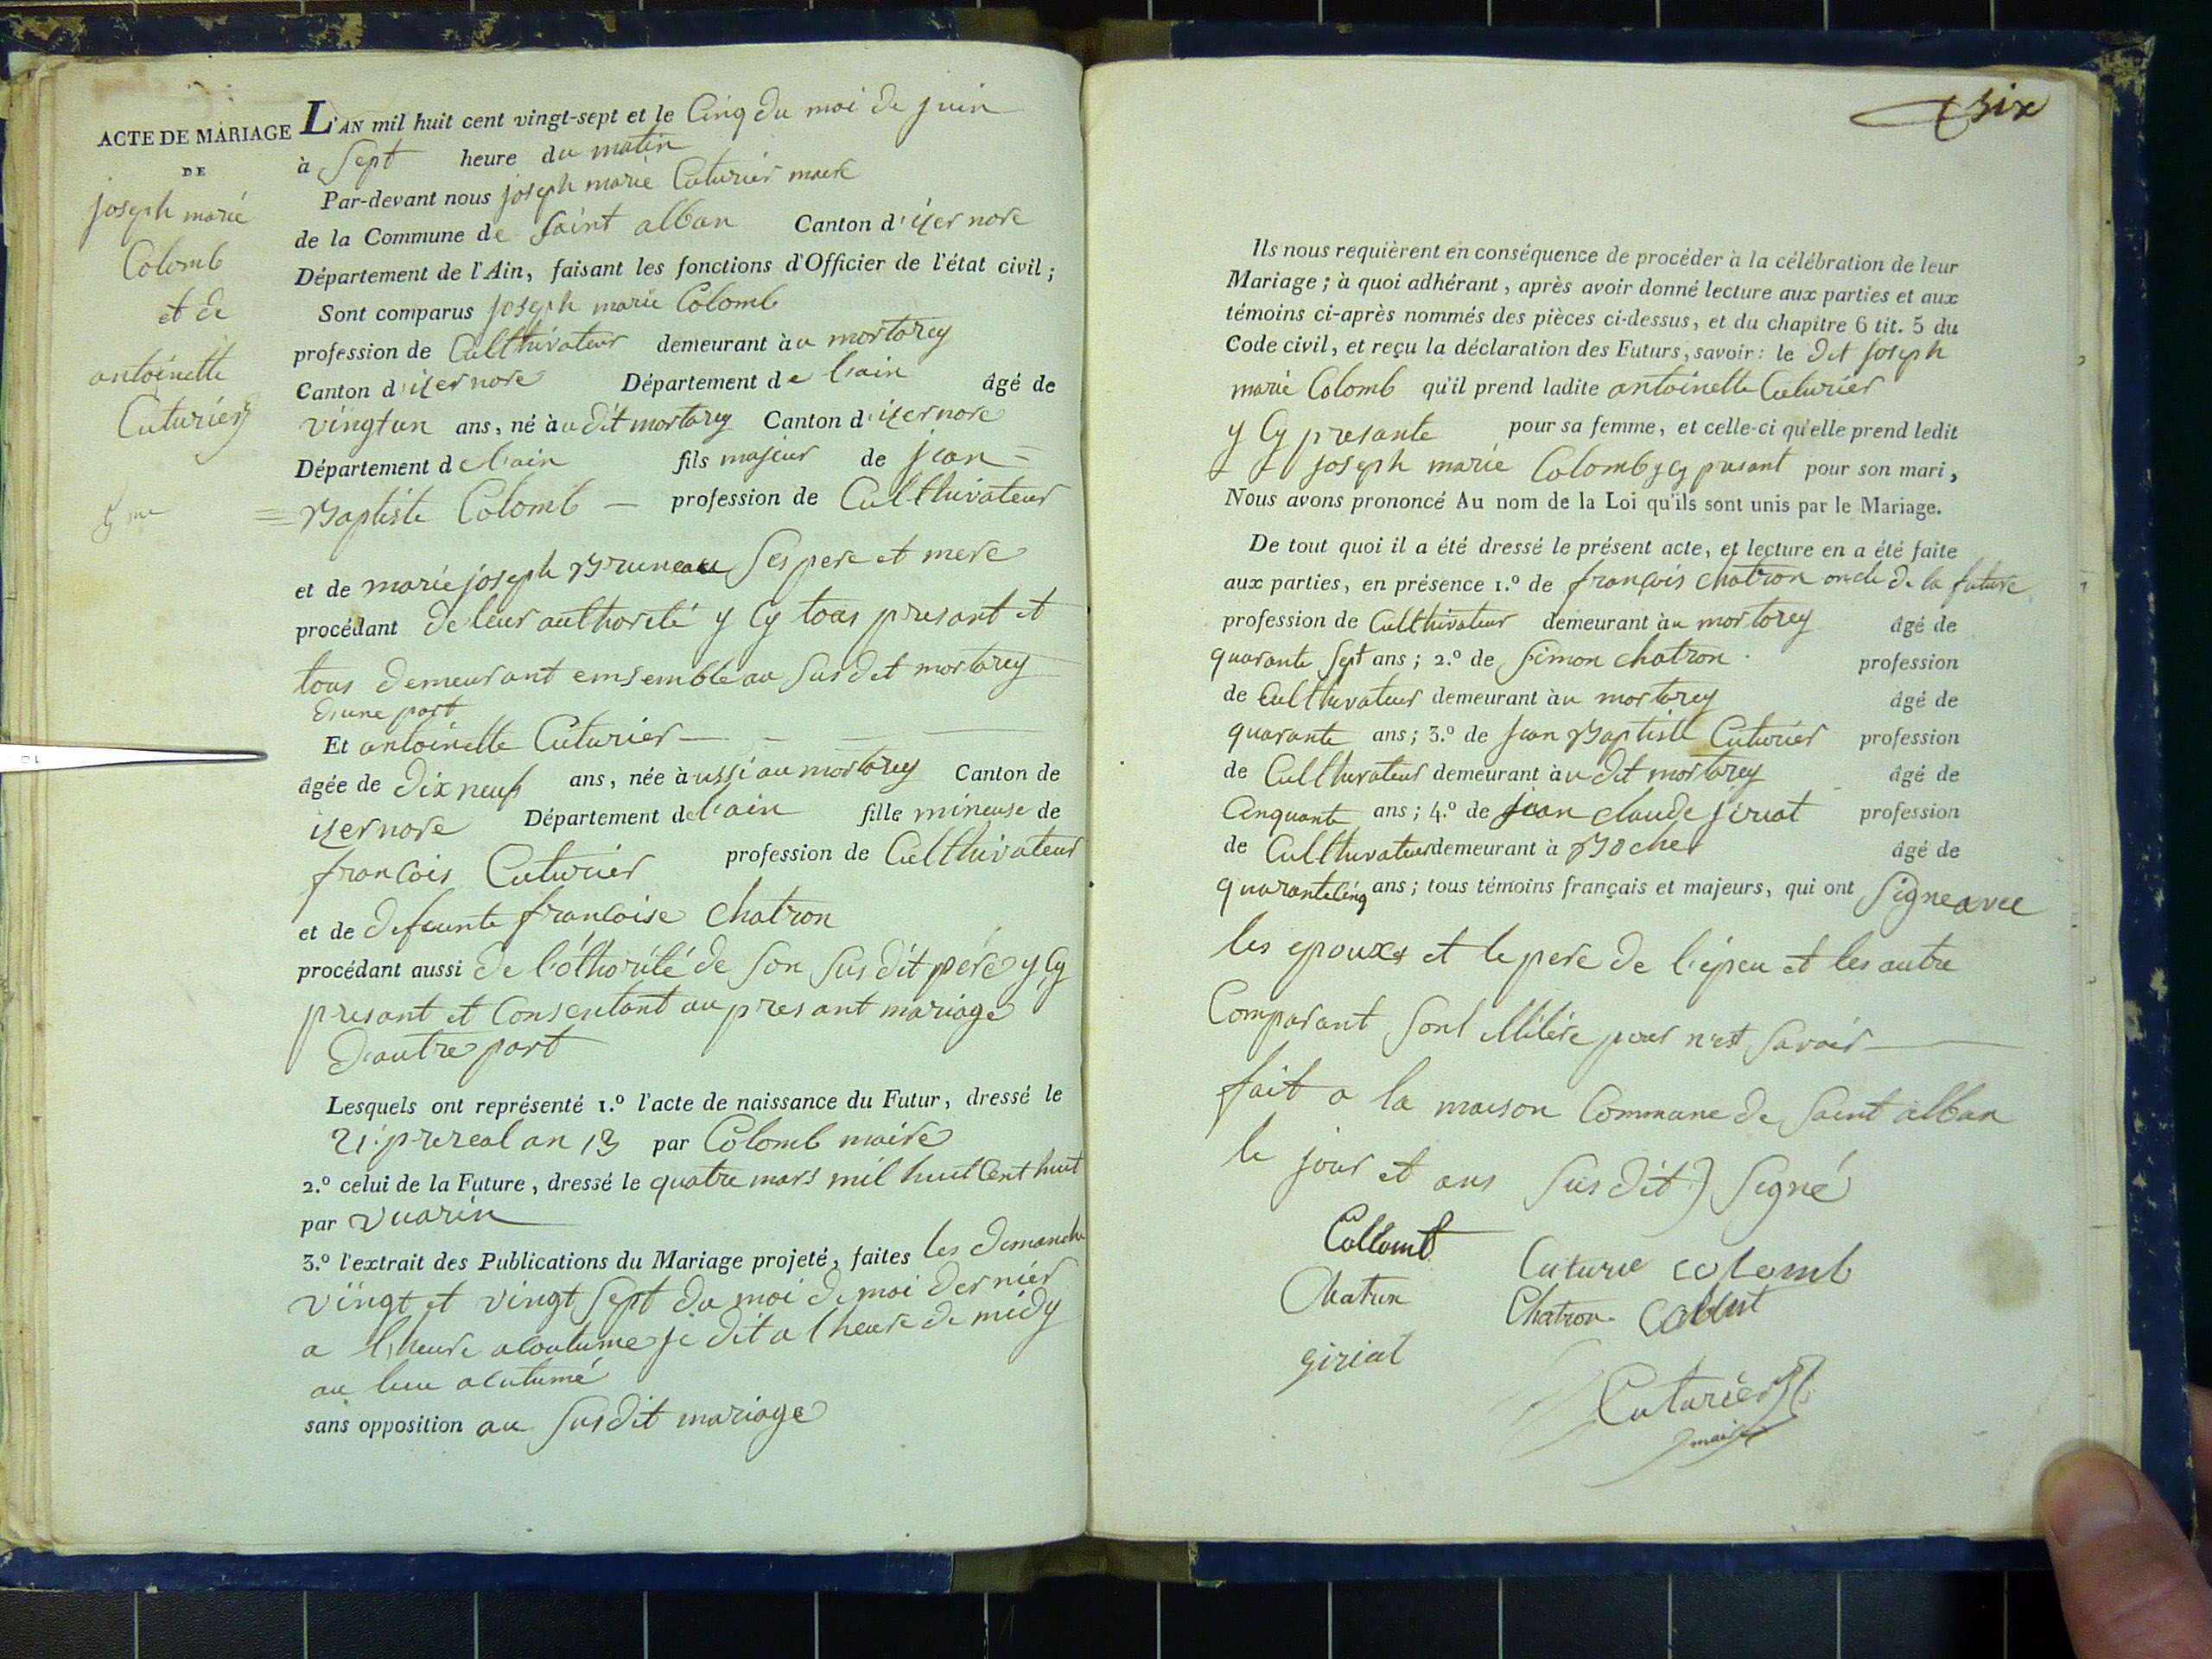 ACTE DE MARIAGE
DE
joseph marie
Colomb
et de
antoinette
Cuturier
5me
L'AN mil huit cent vingt-sept et le Cinq du moi de juin
à Sept heure du matin
Par-devant nous joseph marie Cuturier maire
de la Commune de saint alban Canton d'izernore
Département de l'Ain, faisant les fonctions d'Officier de l'état civil;
Sont comparus joseph marie Colomb
profession de Culthivateur demeurant àu mortarey
Canton d'izernore Département de l'ain âgé de
vingt un ans, né àu dit mortarey Canton d'izernore
Département de l'ain fils majeur de jean =
= Baptiste Colomb — profession de Culthivateur
et de marie joseph Bruneau Ses pere et mere
procédant de leur authorité y Cy tous presant et
tous demeurant emsemble au Susdit mortarey
d'une part
Et antoinette Cuturier —
âgée de dix neuf ans, née àussi au mortarey Canton de
izernore Département de l'ain fille mineuse de
francois Cuturier profession de Culthivateur
et de defeunte francoise Chatron
procédant aussi de l'othorité de son sus dit pére y Cy
presant et Consentant au presant mariage
d'autre part
Lesquels ont représenté 1.° l'acte de naissance du Futur, dressé le
21 prereal an 13 par Colomb maire
2.° celui de la Future, dressé le quatre mars mil huit Cent huit
par vuarin
3.° l'extrait des Publications du Mariage projeté, faites les dimanche
vingt et vingt Sept du moi de moi dernier
a l'heure acoutume je dit a l heure de midy
au lieu acutumé
sans opposition au susdit mariage
six
Ils nous requièrent en conséquence de procéder à la célébration de leur
Mariage; à quoi adhérant, après avoir donné lecture aux parties et aux
témoins ci-après nommés des pièces ci-dessus, et du chapitre 6 tit. 5 du
Code civil, et reçu la déclaration des Futurs, savoir: le dit joseph
marie Colomb qu'il prend ladite antoinette Cuturier
y Cy presante pour sa femme, et celle-ci qu'elle prend ledit
joseph marie Colomb y cy presant pour son mari,
Nous avons prononcé Au nom de la Loi qu'ils sont unis par le Mariage.
De tout quoi il a été dressé le présent acte, et lecture en a été faite
aux parties, en présence 1.° de françois chatron oncle de la future
profession de Culthivateur demeurant àu mortorey âgé de
quarante Sept ans; 2.° de Simon chatron profession
de Culthivateur demeurant àu mortarey âgé de
quarante ans; 3.° de Jean Baptiste Cuturier profession
de Culthivateur demeurant àu dit mortarey âgé de
Cinquante ans; 4.° de jean claude jiriat profession
de Culthivateur demeurant à Boche âgé de
quarante Cinq ans; tous témoins français et majeurs, qui ont Signe avec
les epoux et le pere de l'épeu et les autre
Comparant sont illitére pour n'est savoir
fait a la maison Commune de saint alban
le jour et ans susdit) Signé
Collomb
Cuturie colomb
Chatron
Chatron
giriat
Cuturier
maire